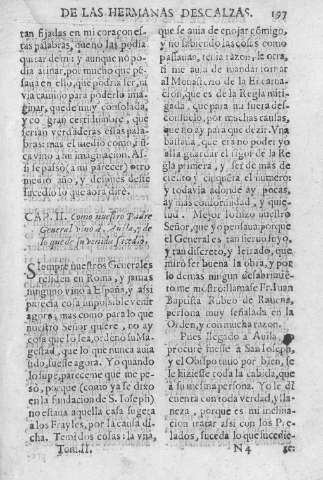 DE LAS HERMANAS DESCALZAS. 197
tan fijadas en mi coraçon es-
tas palabras, que no las podia
quitar de mi: y aunque no po-
dia atinar, por mucho que pẽ-
saua en ello, que podria ser, ni
via camino para poderlo ima-
ginar, quede muy consolada,
y cõ gran certidumbre, que
serian verdaderas estas pala-
bras: mas el medio como, nũ
ca vino a mi imaginacion. As-
si se passò (a mi parecer) otro
medio año, y despues deste
sucedio lo que aora dire.
CAP. II. Como nuestro Padre
General vino a Auila, y de
lo que de su venida sucedio.
Siempre nuestros Generales
residen en Roma, y jamas
ninguno vino a España, y assi
parecia cosa impossible venir
agora, mas como para lo que
nuestro Señor quiere, no ay
cosa que lo sea, ordenò su Ma-
gestad, que lo que nunca auia
sido, fuesse agora. Yo quando
lo supe, pareceme que me pe-
sò, porque (como ya se dixo
en la fundacion de S. Ioseph)
no estaua aquella casa sugeta
a los Frayles, por la causa di-
cha. Temi dos cosas: la vna,
Tom. II.
que se auia de enojar cõmigo,
y no sabiendo las cosas como
passauan, tenia razon, le otra,
si me auia de mandar tornar
al Monasterio de la Encarna-
cion, que es de la Regla miti-
gada, que para mi fuera des-
consuelo, por muchas causas,
que no ay para que dezir. Vna
bastaua, que era no poder yo
allà guardar el rigor de la Re
gla primera, y ser de mas de
ciento y cinquẽta el numero:
y todavia adonde ay pocas,
ay mas conformidad, y quie-
tud. Mejor lo hizo nuestro
Señor, que yo pensaua: porque
el General es tan sieruo suyo,
y tan discreto, y letrado, que
mirò ser buena la obra, y por
lo demas ningun desabrimie-
to me mostrò. llamase Fr. Iuan
Baptista Rubeo de Rauena,
persona muy señalada en la
Orden, y con mucha razon.
Pues llegado a Auila
procurè fuesse a San Ioseph,
y el Obispo tuuo por bien, se
le hiziesse toda la cabida, que
a su mesma persona. Yo le dì
cuenta con toda verdad, y lla-
neza, porque es mi inclina-
cion tratar assi con los Pre-
lados, suceda lo que sucedie-
N 4